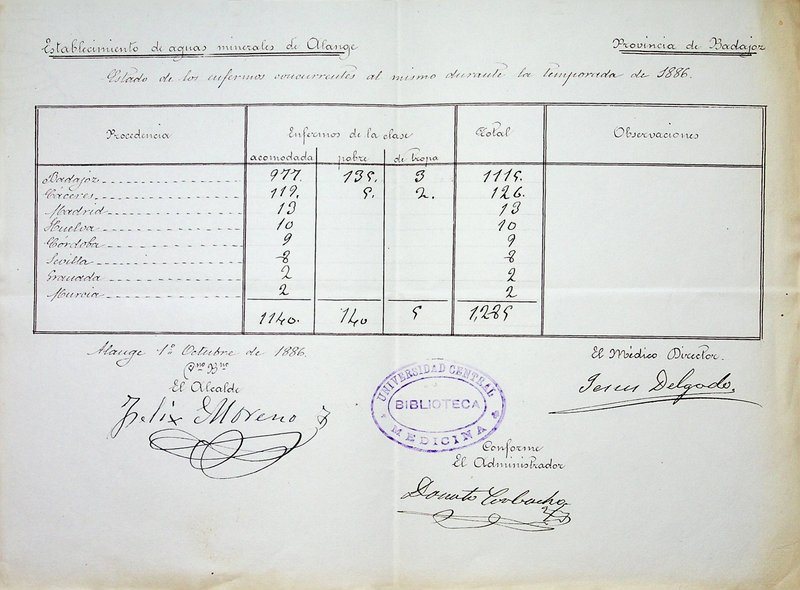 Establecimiento de aguas minerales de Alange Provincia de Badajoz
Estado de los enfermos concurrentes al mismo durante la temporada de 1886.
Procedencia Enfermos de la clase Total Observaciones
acomodada pobre de tropa
Badajoz 977. 135. 3 1115.
Cáceres 119. 5. 2. 126.
Madrid 13 13
Huelva 10 10
Córdoba 9 9
Sevilla 8 8
Granada 2 2
Murcia 2 2
1140. 140 5 1,285
Alange 1º Octubre de 1886.
Vto Bno
El Alcalde
Felix Moreno
El Médico Director.
Jesus Delgado.
UNIVERSIDAD CENTRAL
BIBLIOTECA
MEDICINA
Conforme
El Administrador
Donato Corbacho